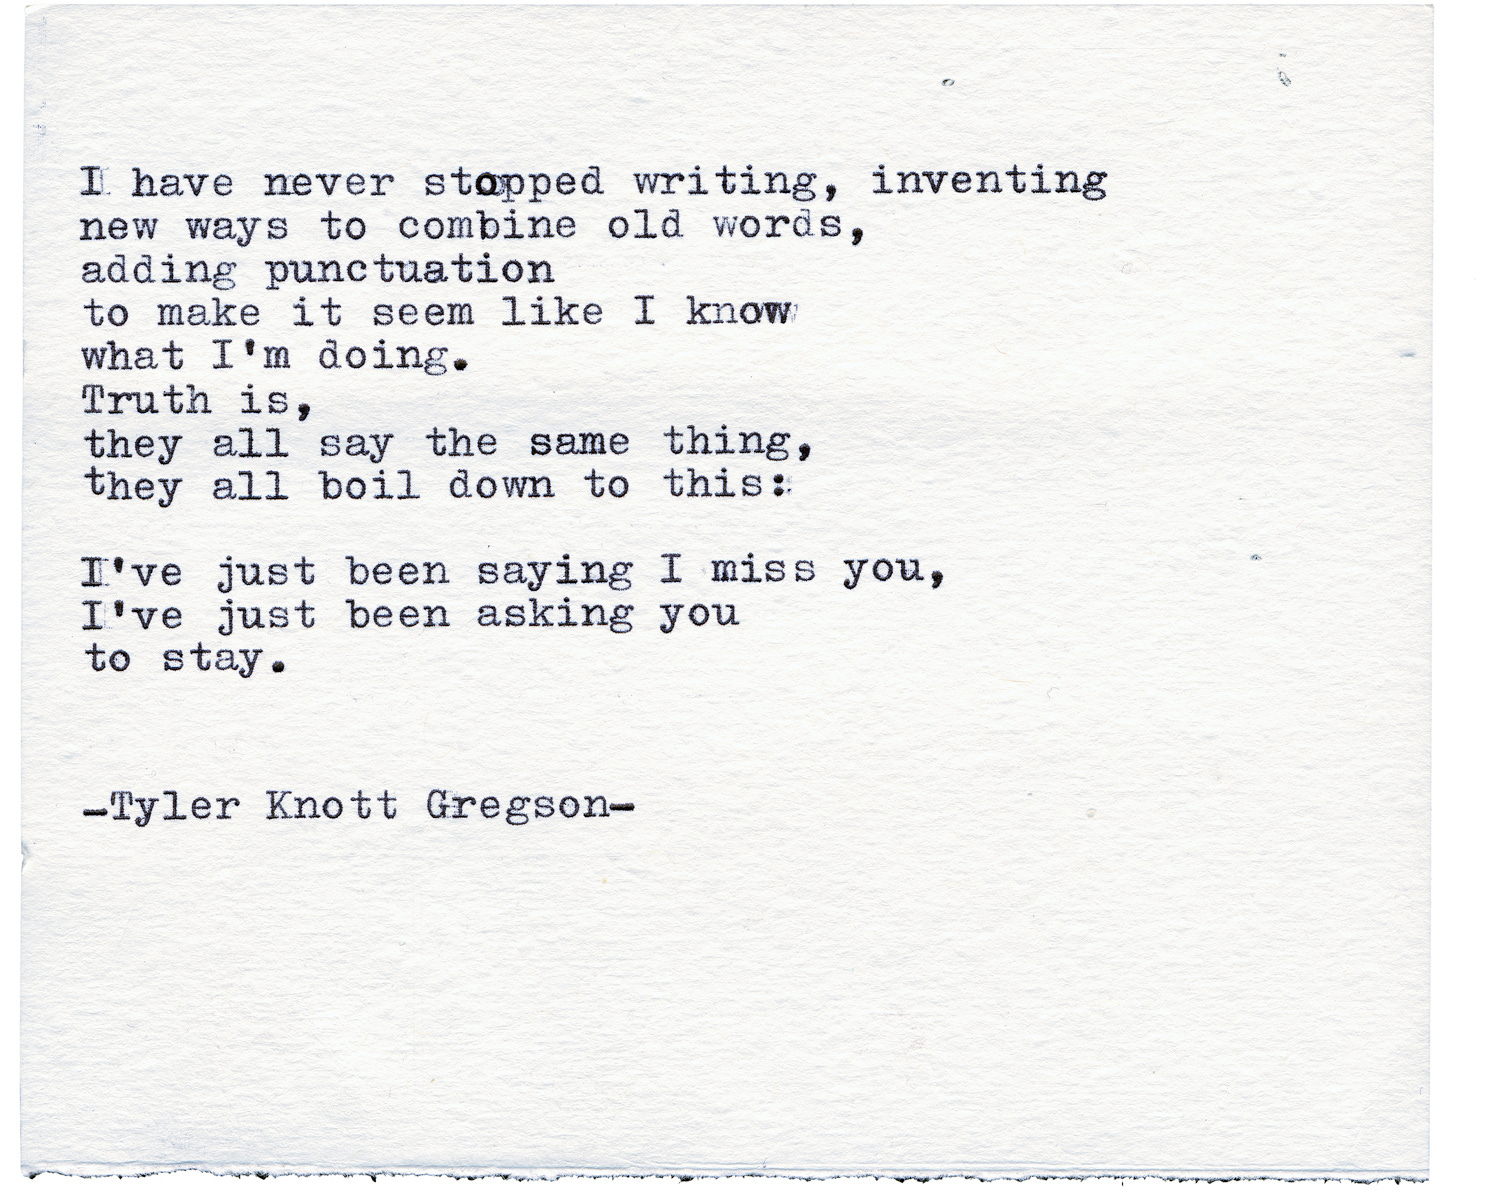 I have never stopped writing, inventing
new ways to combine old words,
adding punctuation
to make it seem like I know
what I'm doing.
Truth is,
they all say the same thing,
they all boil down to this:
I've just been saying I miss you,
I've just been asking you
to stay.
-Tyler Knott Gregson-